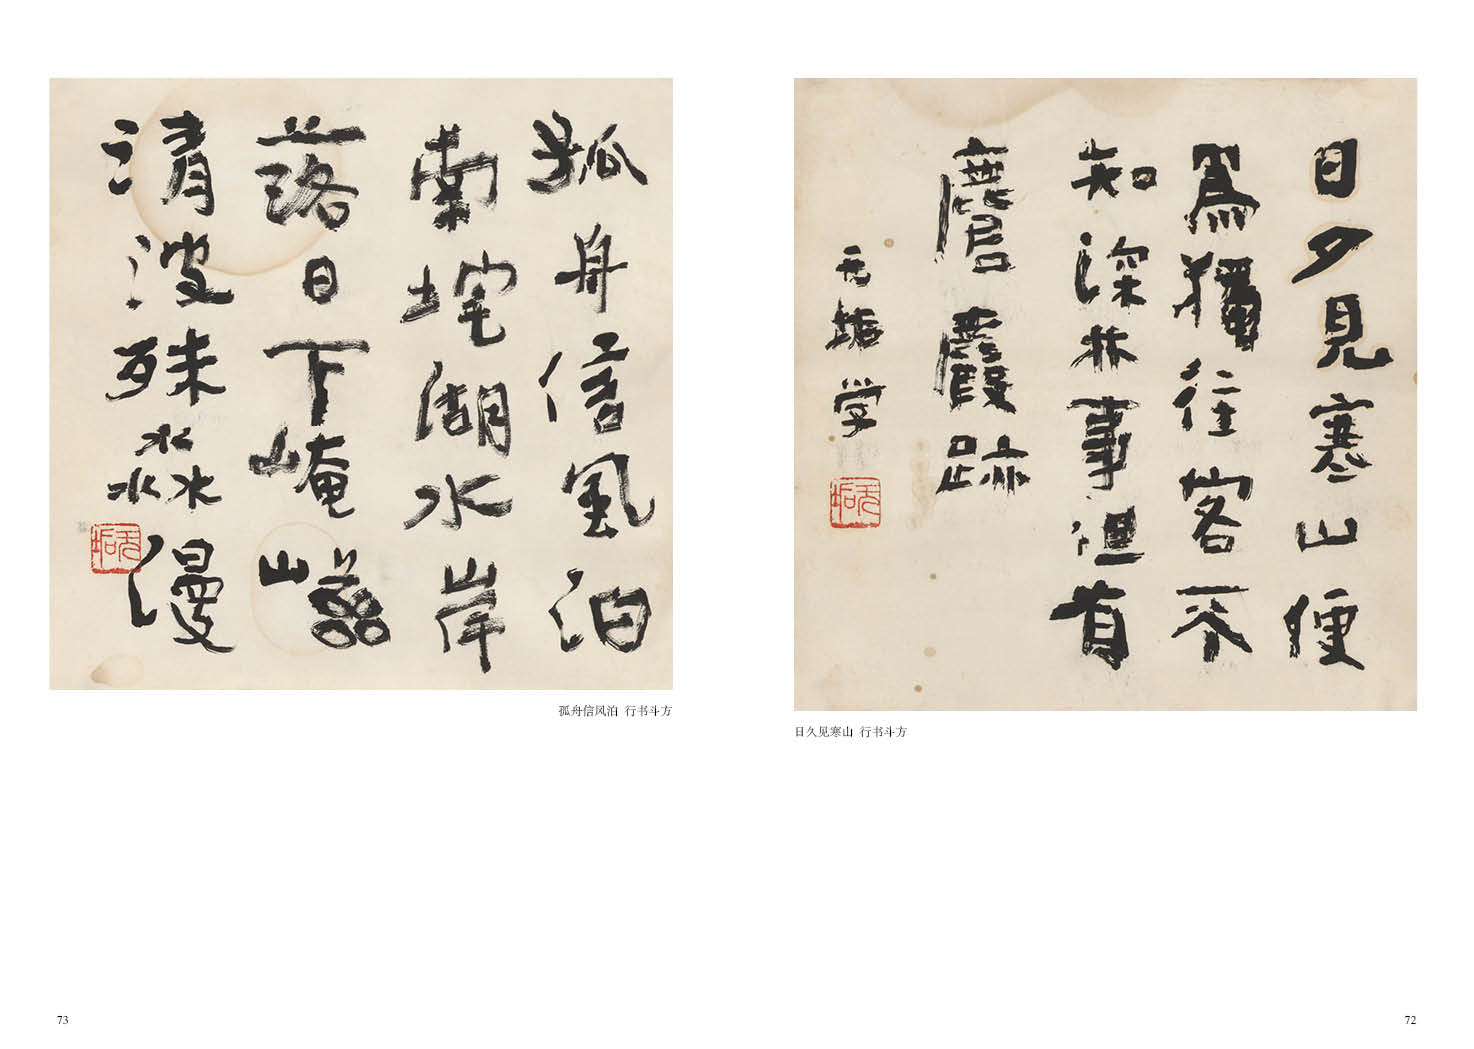 日夕見寒山便
為獨往客不
知深林事但有
麏麚跡
无垢学
无垢
日久见寒山 行书斗方
72
孤舟信風泊
南垞湖水岸
落日下崦嵫
清波殊淼漫
无垢
孤舟信风泊 行书斗方
73